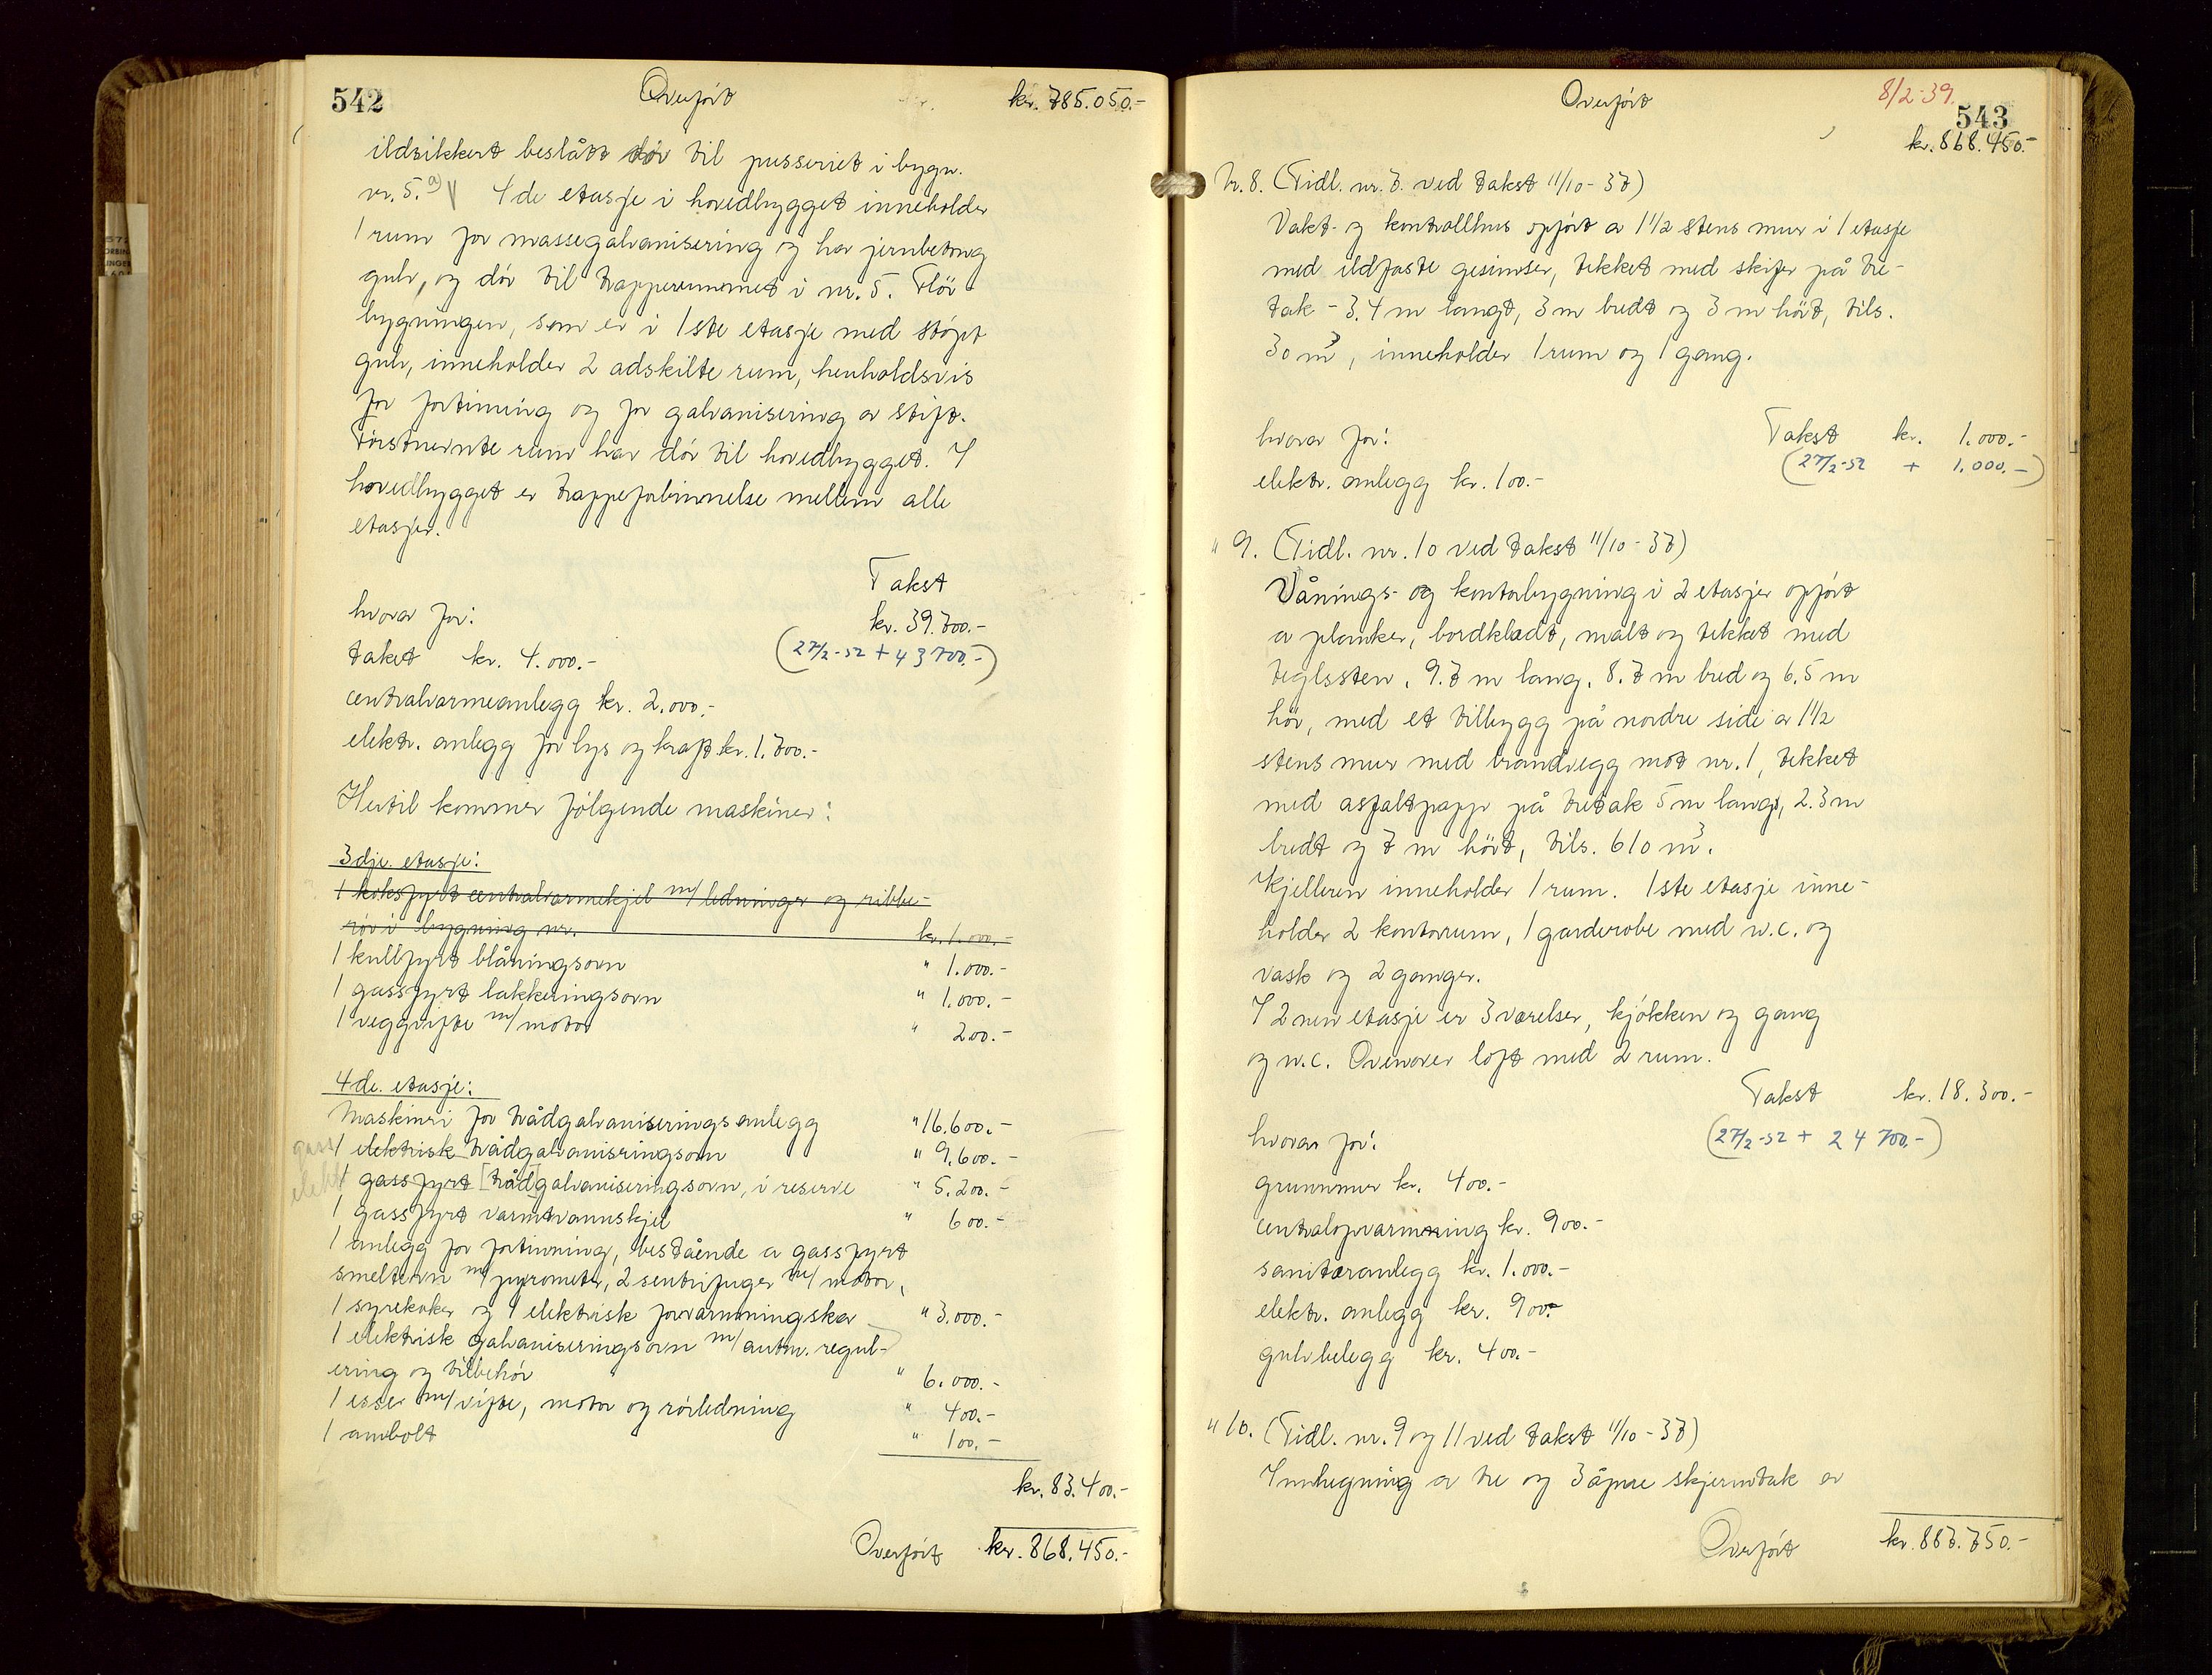 542
Overfört
kr. 785.050.-
ildsikkert beslått dör til pusseriet i bygn.
nr. 5. a) 4de etasje i hovedbygget inneholder
1 rum for massegalvanisering og har jernbetong
gulv, og dör til trapperummet i nr. 5. Flöi-
bygningen, som er i 1ste etasje med stöpt
gulv, inneholder 2 adskilte rum, henholdsvis
for fortinning og for galvanisering av stift.
Förstnevnte rum har dör til hovedbygget. I
hovedbygget er trappeforbinnelse mellem alle
etasjer.
Takst
hvorav for:
kr. 39.700.-
taket kr. 4.000.-
(27/2-52 + 43700.-)
centralvarmeanlegg kr. 2.000.-
elektr. anlegg for lys og kraft kr. 1.700.-
Hertil kommer fölgende maskiner:
3dje. etasje:
1 koksfyrt centralvarmekjel m/ ledninger og ribbe-
rör i bygning nr. kr. 1.000.-
1 kullfyrt blåningsovn " 1.000.-
1 gassfyrt lakkeringsovn " 1.000.-
1 veggvifte m/ motor " 200.-
4de. etasje:
Maskineri for trådgalvaniseringsanlegg " 16.600.-
gass 1 elektrisk trådgalvaniseringsovn " 9.600.-
elekt 1 gassfyrt [tråd]galvaniseringsovn, i reserve " 5.200.-
1 gassfyrt varmtvannskjel " 600.-
1 anlegg for fortinning, bestående av gassfyrt
smelteovn m/ pyrometer, 2 sentrifuger m/ motor,
1 syrekoker og 1 elektrisk forvarmningskar " 3.000.-
1 elektrisk galvaniseringsovn m/ autm. regul-
ering og tilbehör " 6.000.-
1 esse m/ vifte, motor og rörledning " 400.-
1 ambolt " 100.-
kr. 83.400.-
Overfört kr. 868.450.-
Overfört
8/2-39.
543
kr. 868.450.-
Nr. 8. (Tidl. nr. 7. ved takst 11/10-37)
Vakt- og kontrollhus opfört av 1 1/2 stens mur i 1 etasje
med ildfaste gesimser, tekket med skifer på tre-
tak - 3.4 m langt, 3 m bredt og 3 m höit, tils.
30 m3, inneholder 1 rum og 1 gang.
Takst kr. 1.000.-
hvorav for:
(27/2-52 + 1.000.-)
elektr. anlegg kr. 100.-
" 9. (Tidl. nr. 10 ved takst 11/10-37)
Vånings- og kontorbygning i 2 etasjer opfört
av planker, bordklædt, malt og tekket med
teglsten, 9.7 m lang, 8.7 m bred og 6.5 m
höi, med et tilbygg på nordre side av 1 1/2
stens mur med brandvegg mot nr. 1, tekket
med asfaltpapp på tretak 5 m langt, 2.3 m
bredt og 7 m höit, tils. 610 m3.
Kjelleren inneholder 1 rum. 1ste etasje inne-
holder 2 kontorrum, 1 garderobe med w.c. og
vask og 2 ganger.
I 2nen etasje er 3 værelser, kjökken og gang
og w.c. Ovenover loft med 2 rum.
Takst kr. 18.300.-
hvorav for:
(27/2-52 + 24700.-)
grunnmur kr. 400.-
centralopvarmning kr. 900.-
sanitæranlegg kr. 1.000.-
elektr. anlegg kr. 900.-
gulvbelegg kr. 400.-
" 10. (Tidl. nr. 9 og 11 ved takst 11/10-37)
Innhegning av tre og 3 åpne skjermtak av
Overfört kr. 887.750.-